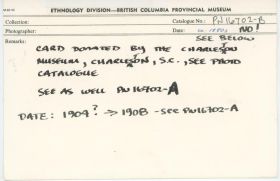 ETHNOLOGY DIVISION—BRITISH COLUMBIA PROVINCIAL MUSEUM
Collection:
Catalogue No.: PN 16702-B
Photographer:
Date: NO!
Remarks:
SEE BELOW
CARD DONATED BY THE CHARLESON
MUSEUM, CHARLESON, S.C., SEE PHOTO
CATALOGUE
SEE AS WELL PN 16702-A
DATE: 1904? → 1908 - SEE PN16702-A